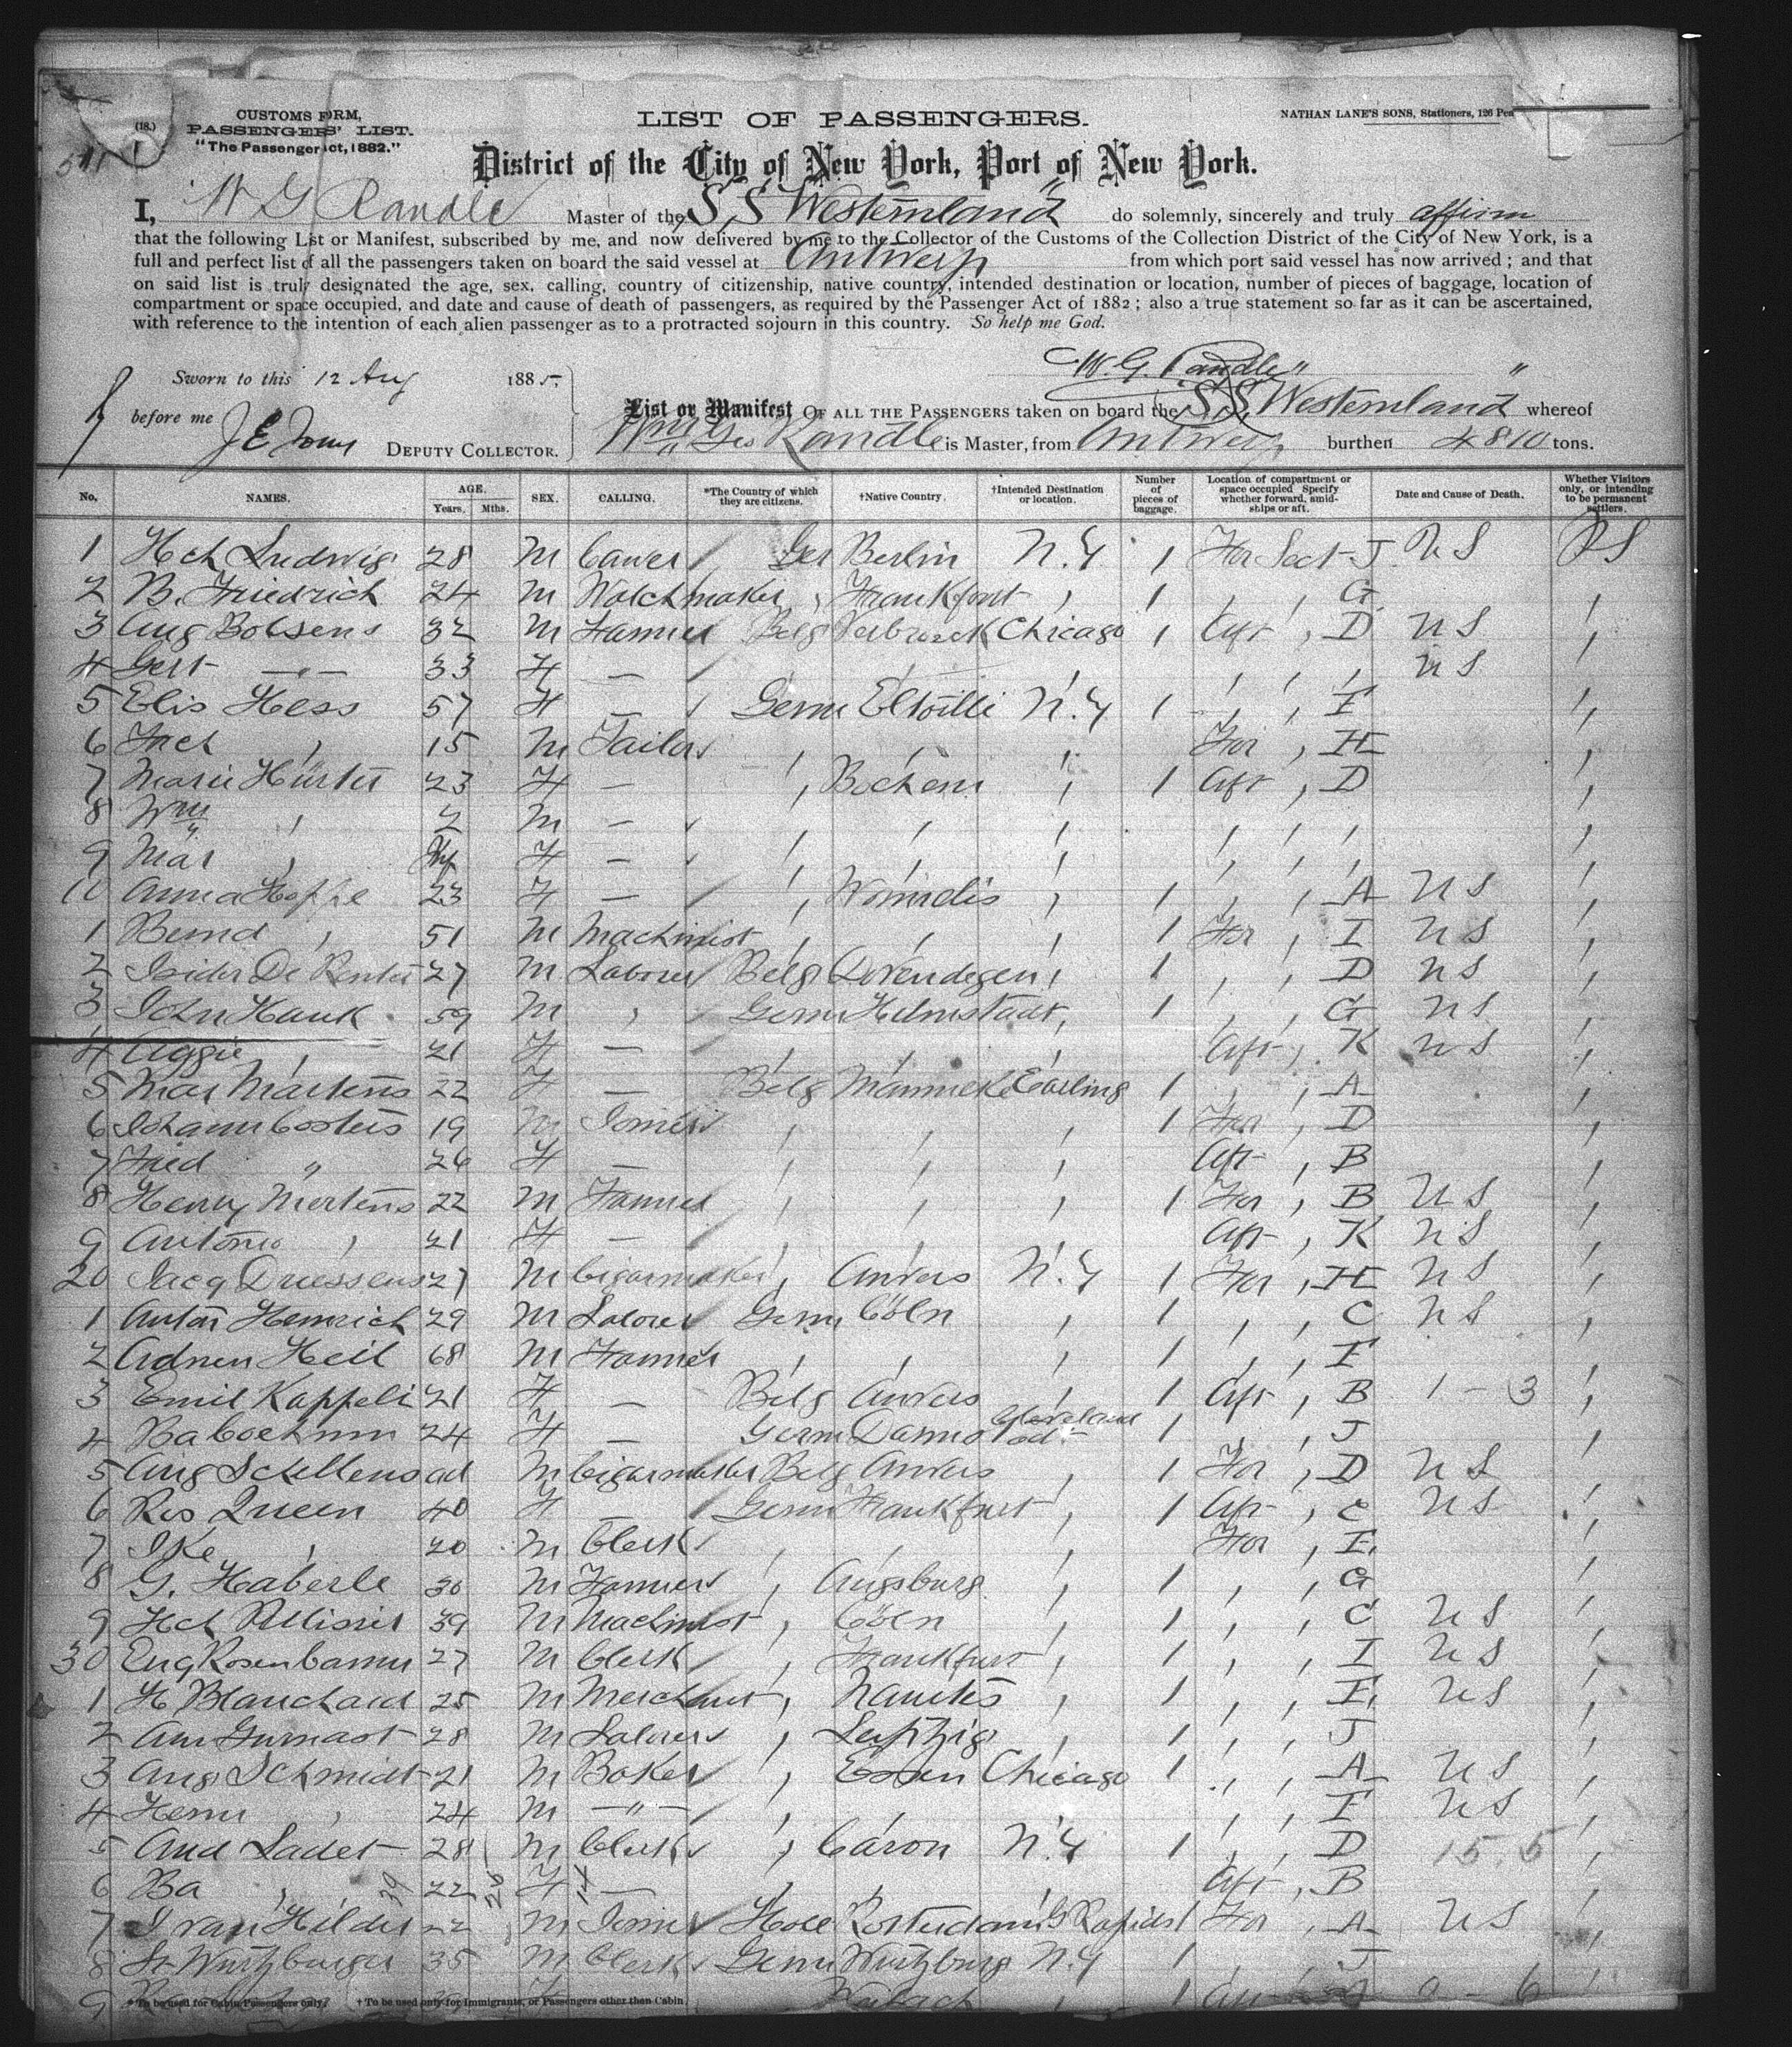 (18.)
CUSTOMS FORM,
PASSENGERS' LIST.
"The Passenger Act, 1882."
LIST OF PASSENGERS.
NATHAN LANE'S SONS, Stationers, 126 Pea
District of the City of New York, Port of New York.
I, W G Randle Master of the SS "Westernland" do solemnly, sincerely and truly affirm
that the following List or Manifest, subscribed by me, and now delivered by me to the Collector of the Customs of the Collection District of the City of New York, is a
full and perfect list of all the passengers taken on board the said vessel at Antwerp from which port said vessel has now arrived; and that
on said list is truly designated the age, sex, calling, country of citizenship, native country, intended destination or location, number of pieces of baggage, location of
compartment or space occupied, and date and cause of death of passengers, as required by the Passenger Act of 1882; also a true statement so far as it can be ascertained,
with reference to the intention of each alien passenger as to a protracted sojourn in this country. So help me God.
W. G. Randle
Sworn to this 12 Aug 1885.
before me DEPUTY COLLECTOR.
List or Manifest OF ALL THE PASSENGERS taken on board the SS "Westernland" whereof
Wm Geo Randle is Master, from Antwerp burthen 4810 tons.
No. NAMES. AGE. Years. Mths. SEX. CALLING. *The Country of which they are citizens. †Native Country. †Intended Destination or location. Number of pieces of baggage. Location of compartment or space occupied Specify whether forward, amidships or aft. Date and Cause of Death. Whether Visitors only, or intending to be permanent settlers.
1 Hch Ludwig 28 M Ger Berlin N.Y 1 For Sect J US PS
2 B. Friedrich 24 M Watchmaker , Frankfort , 1 , , G ,
3 Aug 32 M Farmer Belg Chicago 1 Aft , D US ,
4 Gert —"— 33 F — , , , , , , US ,
5 Elis Hess 57 F — Germ Eltville N.Y 1 , ,
6 , 15 M Tailor , , , For , H ,
7 Marie Hürter 23 F — , Bochem , 1 Aft , D ,
8 Wm , 2 M — , , , , , , ,
9 Mar , F — , , , , , , ,
10 Anna Hoppe 23 F — , , 1 , , A US ,
1 Bernd , 51 M Machinist , , , 1 For , I US ,
2 Isidor De 27 M Laborer Belg , 1 , , D US ,
3 John Hauk 59 M , Germ Helmstadt , 1 , , G US ,
4 Aggie , 21 F — , , , Aft , K US ,
5 Mar Martens 22 F — Belg Earling 1 , , A ,
6 Johann Costers 19 M , , , 1 For , D ,
7 Fried " 26 F — , , , Aft , B ,
8 Henry Mertens 22 M Farmer , , , 1 For , B US ,
9 Antonio , 21 F — , , , Aft , K US ,
20 Jacq Driessens 27 M Cigarmaker , Anvers N.Y 1 For , H US ,
1 Anton Heinrich 29 M Laborer Germ Cöln , 1 , , C US ,
2 Heil 68 M Farmer , , , 1 , ,
3 Emil Kappeli 21 F — Belg Anvers , 1 Aft , B 1 - 3 ,
4 Ba 24 F — Germ Cleveland 1 , , J ,
5 Aug Schellens ad M Cigarmaker Belg Anvers , 1 For , D US ,
6 Ros Queen 40 F — Germ Frankfurt , 1 Aft , C US ,
7 Ike , 20 M Clerk , , , For , ,
8 G. Haberle 30 M Farmer , Augsburg , 1 , , G ,
9 Hch 39 M Machinist , Cöln , 1 , , C US ,
30 Eug Rosenbaum 27 M Clerk , Frankfurt , 1 , , I US ,
1 H Blanchard 25 M Merchant , Nantes , 1 , , US ,
2 28 M Laborer , Leipzig , 1 , , J ,
3 Aug Schmidt 21 M Baker , Essen Chicago 1 , , A US ,
4 Herm , 24 M —"— , , , , , US ,
5 And Ladet 28 M Clerk , N.Y 1 , , D 15. 5 ,
6 Ba , 22 F — , , , Aft , B ,
7 J van Hilder 22 M Holl Rotterdam G Rapids 1 For , A US ,
8 Wurtzburger 35 M Clerk Germ Wurtzburg N.Y 1 , , J ,
9 F , 1 - 6
*To be used for Cabin Passengers only. †To be used only for Immigrants, or Passengers other than Cabin.